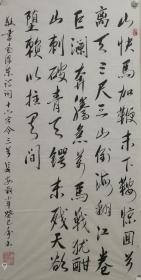 山快馬加鞭未下鞍驚回首
離天三尺三山倒海翻江卷
巨瀾奔騰急萬馬戰猶酣
山刺破青天鍔未殘天欲
墮賴以拄其間
書毛澤東詩詞十六字令三首 癸巳年